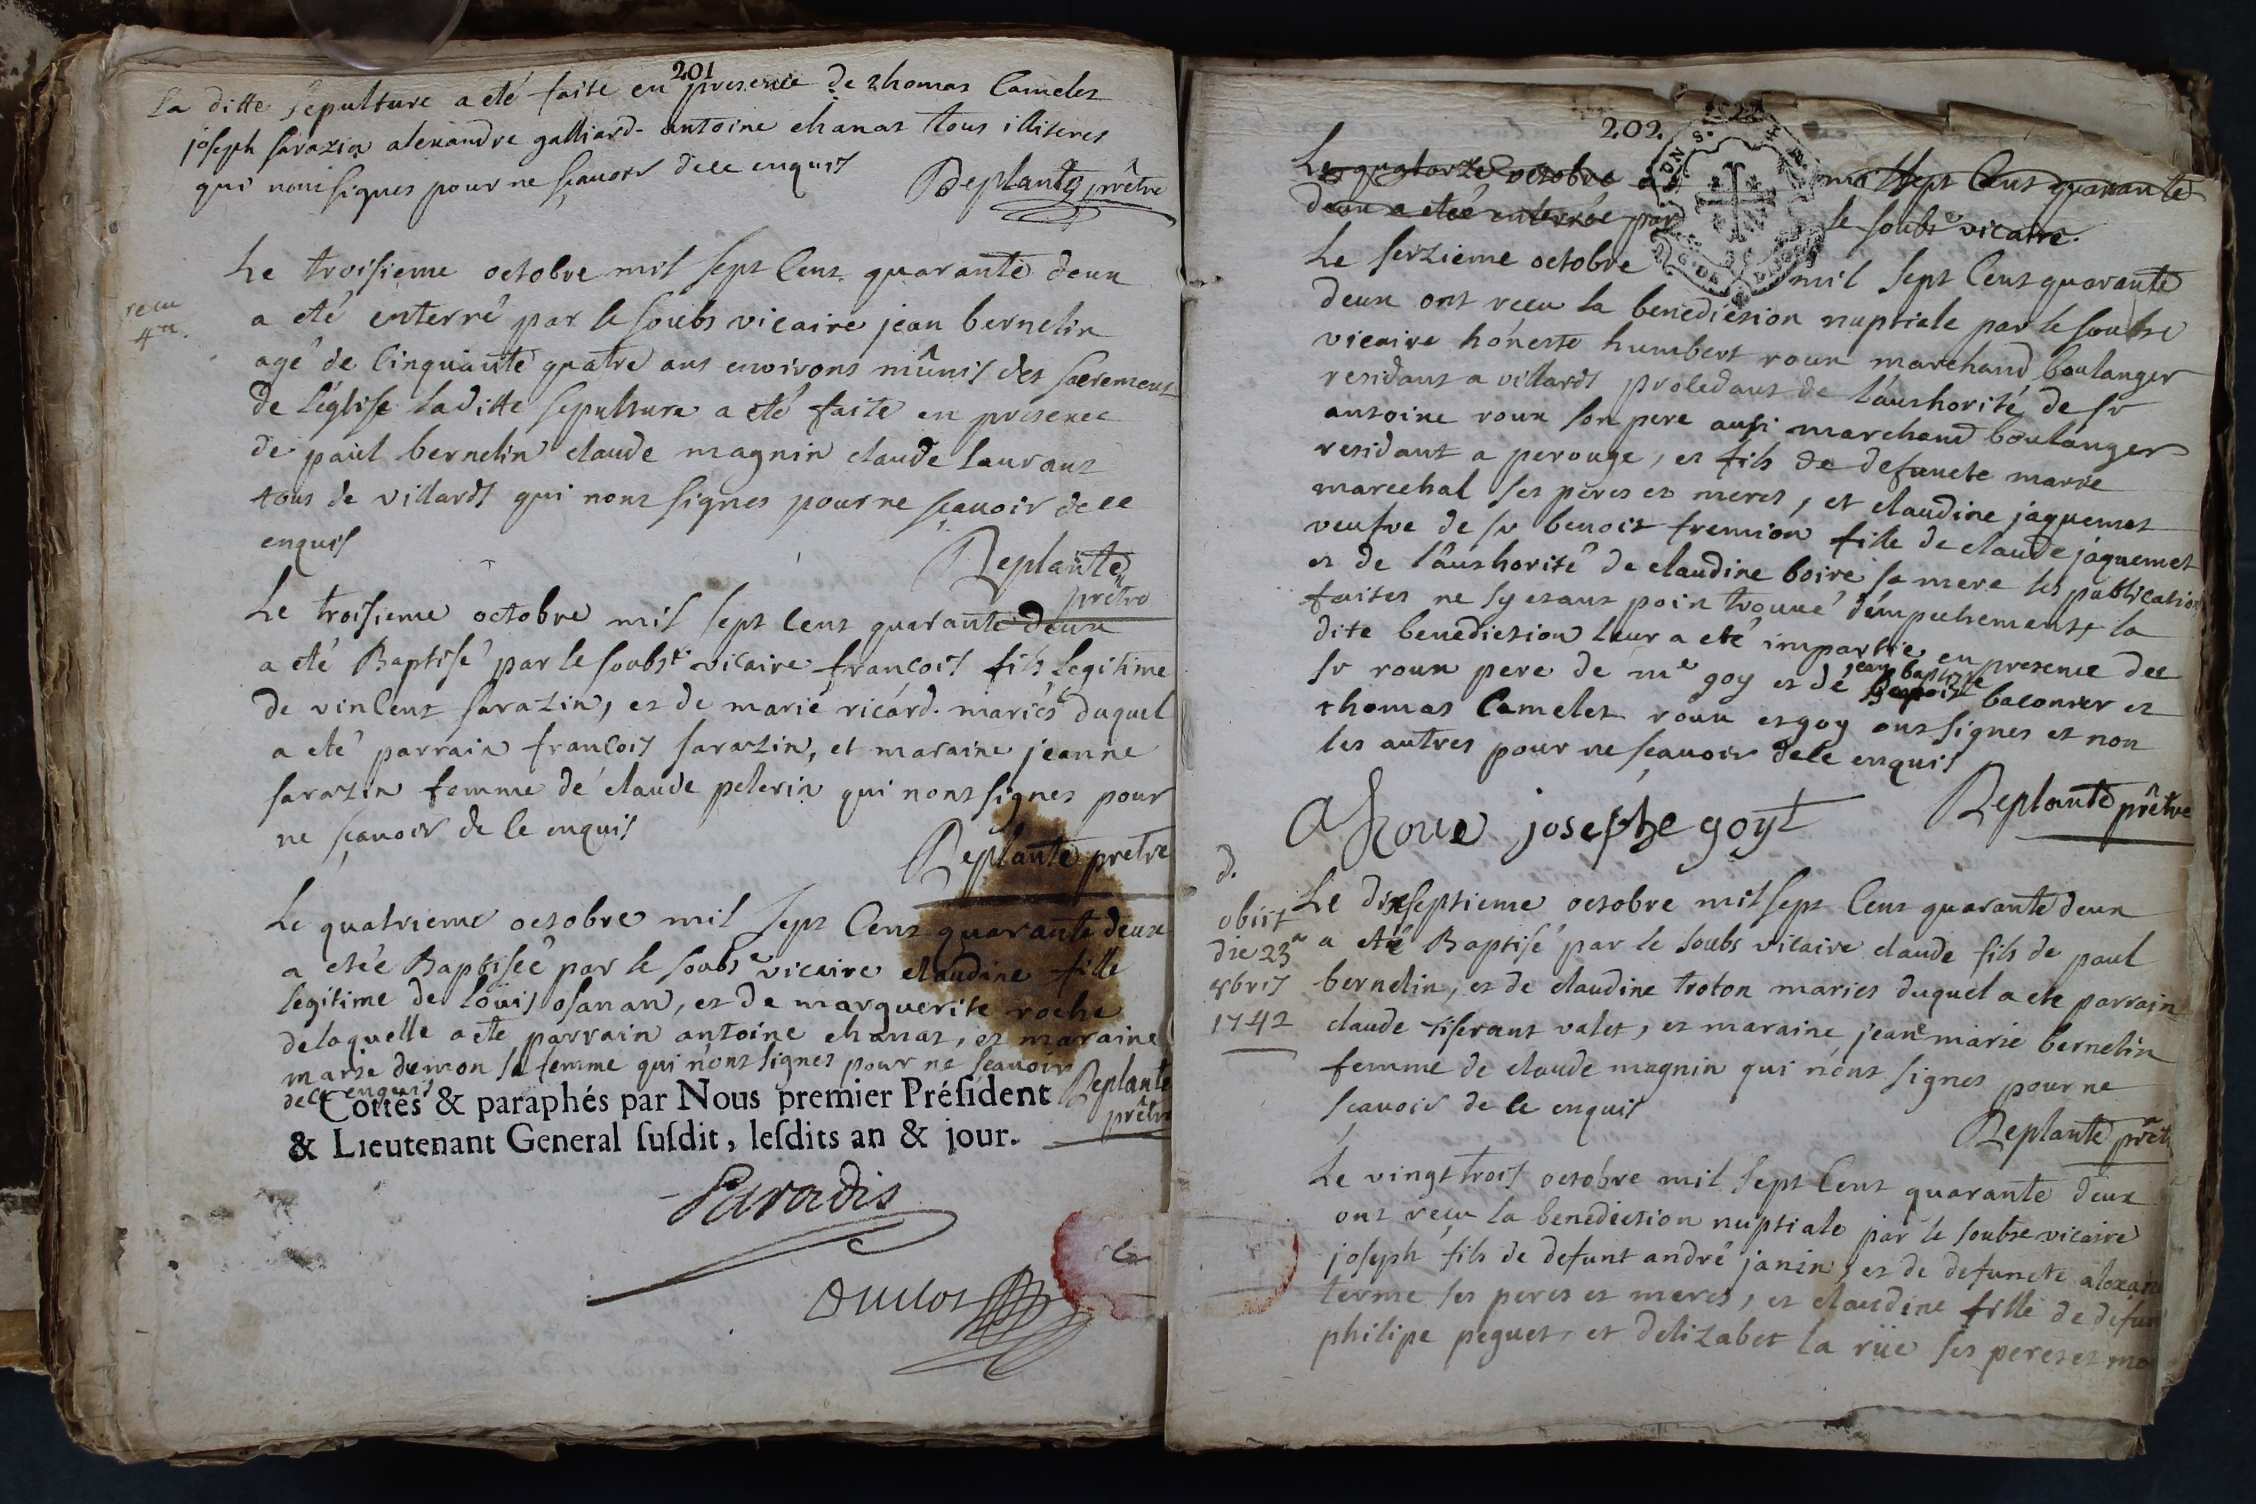 201
La ditte sepulture a eté faite en presence de thomas Camelet
joseph sarazin alexandre galliard antoine chanat tous illiteres
qui nont signes pour ne sçavoir de ce enquis
Replante prêtre
Le troisieme octobre mil sept Cent quarante deux
a eté enterré par le soubs vicaire jean bernelin
agé de Cinquante quatre ans environs mûnis des sacremens
de l'église laditte sepulture a eté faite en presence
de paul bernelin claude magnin claude laurant
tous de villards qui nont signes pour ne sçavoir de ce
enquis
Replante
prêtre
reçu
Le troisieme octobre mil sept Cent quarante deux
a eté Baptisé par le soubse vicaire francois fils legitime
de vinCent sarazin, et de marie ricard mariés duquel
a eté parrain francois sarazin, et maraine jeanne
sarazin femme de claude pelerin qui nont signes pour
ne sçavoir de ce enquis
Replante pretre
Le quatrieme octobre mil sept Cent quarante deux
a eteé Baptiseé par le soubse vicaire claudine fille
legitime de loüis osanan, et de marguerite roche
delaquelle a ete parrain antoine chanat, et maraine
marie dumon sa femme qui n'ont signes pour ne sçavoir
de ce enquis
Replante
prêtre
Cottés & paraphés par Nous premier Préſident
& Lieutenant General ſuſdit, leſdits an & jour.
Paradis
Duclos
202.
Le quatorze octobre mil sept Cent quarante
deux a eteé enterrée par le soubse vicaire.
Le seizieme octobre mil sept Cent quarante
deux ont reçu la benediction nuptiale par le soubse
vicaire honeste humbert roux marchand boulanger
residant a villards procedant de l'authorité de sr
antoine roux son pere ausi marchand boulanger
residant a perouge, et fils de defuncte marie
marechal ses peres et meres, et claudine jaquemet
veufve de sr benoit fremion fille de claude jaquemet
et de l'authorité de claudine boire sa mere les publications
faites ne sy etant poin trouvé d'empechement la
dite benediction leur a eté impartie en presence dee
sr roux pere de me goy et de jean baptiste baconier et
thomas Camelet roux et goy ont signes et non
les autres pour ne sçavoir de ce enquis
Replante prêtre
A Roue josephe goyt
d.
obiit
die 23a
8bris
1742
Le dixseptieme octobre mil sept Cent quarante deux
a eté Baptisé par le soubs vicaire claude fils de paul
bernelin, et de claudine troton maries duquel a ete parrain
claude tiserant valet, et maraine jeane marie bernelin
femme de claude magnin qui n'ont signes pour ne
sçavoir de ce enquis
Replante prêt
Le vingt trois octobre mil sept Cent quarante deux
ont reçu la benediction nuptiale par le soubse vicaire
joseph fils de defunt andré janin, et de defuncte alexan
terme ses peres et meres, et claudine fille de defun
philipe peguet, et delizabet la rüe ses peres et me